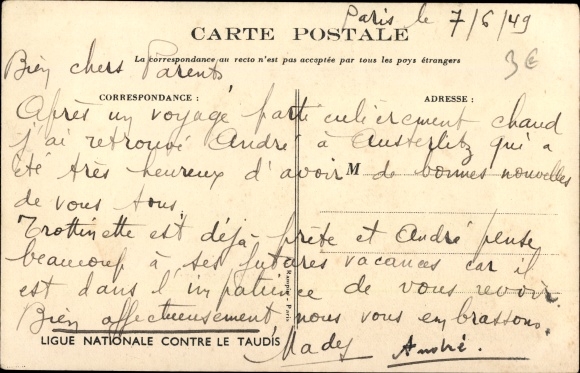 Paris le 7/6/49
CARTE POSTALE
3€
La correspondance au recto n'est pas acceptée par tous les pays étrangers
Bien chers Parents
CORRESPONDANCE :
ADRESSE :
Après un voyage particulièrement chaud
j'ai retrouvé André à Austerlitz qui a
été très heureux d'avoir de bonnes nouvelles
M
de vous tous.
Trottinette est déjà prête et André pense
beaucoup à ses futures vacances car il
est dans l'impatience de vous revoir.
Bien affectueusement nous vous embrassons.
LIGUE NATIONALE CONTRE LE TAUDIS
Mady André.
Paris